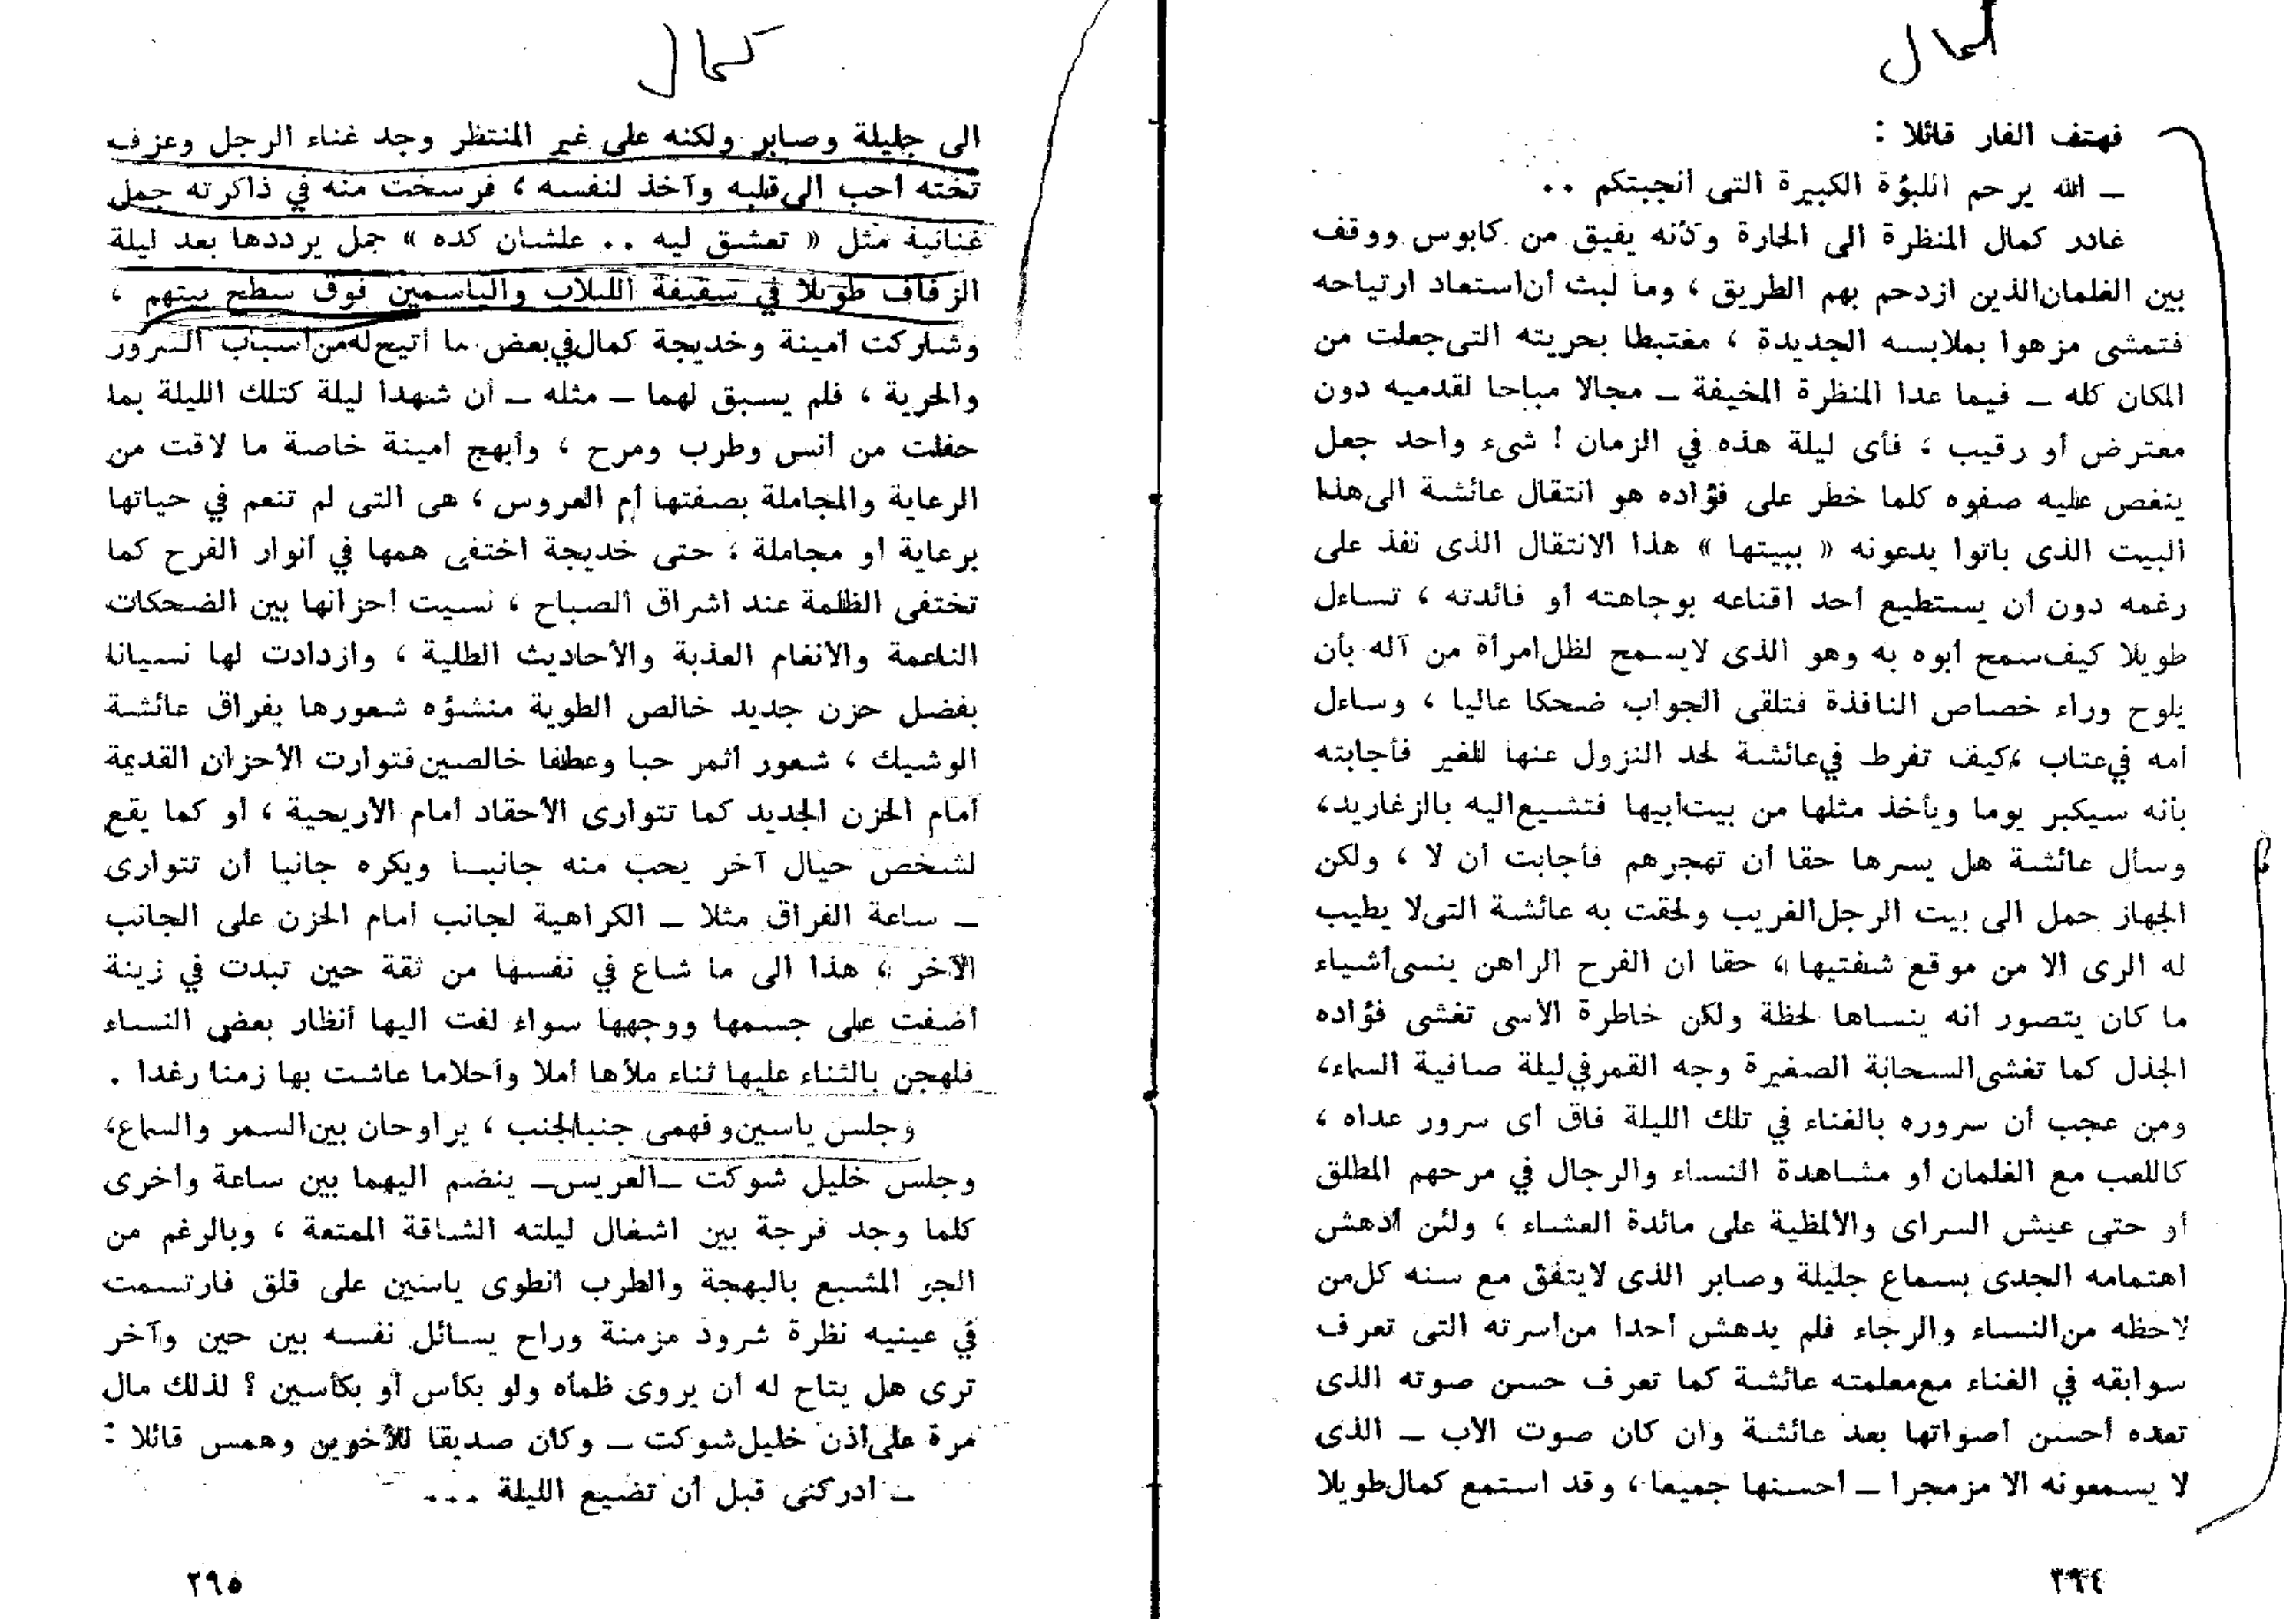 كمال
فهتف الفار قائلا :
ـ الله يرحم اللبؤة الكبيرة التى أنجبتكم ..
غادر كمال المنظرة الى الحارة وكأنه يفيق من كابوس ووقف
بين الغلمان الذين ازدحم بهم الطريق ، وما لبث أن استعاد ارتياحه
فتمشى مزهوا بملابسه الجديدة ، مغتبطا بحريته التى جعلت من
المكان كله ـ فيما عدا المنظرة المخيفة ـ مجالا مباحا لقدميه دون
معترض أو رقيب ، فأى ليلة هذه في الزمان ! شىء واحد جعل
ينغص عليه صفوه كلما خطر على فؤاده هو انتقال عائشة الى هذا
البيت الذى باتوا يدعونه « ببيتها » هذا الانتقال الذى نفذ على
رغمه دون أن يستطيع أحد اقناعه بوجاهته أو فائدته ، تساءل
طويلا كيف سمح أبوه به وهو الذى لايسمح لظل امرأة من آله بأن
يلوح وراء خصاص النافذة فتلقى الجواب ضحكا عاليا ، وساءل
أمه في عتاب ، كيف تفرط في عائشة لحد النزول عنها للغير فأجابته
بأنه سيكبر يوما ويأخذ مثلها من بيت أبيها فتشيع اليه بالزغاريد،
وسأل عائشة هل يسرها حقا أن تهجرهم فأجابت أن لا ، ولكن
الجهاز حمل الى بيت الرجل الغريب ولحقت به عائشة التى لا يطيب
له الرى الا من موقع شفتيها ، حقا ان الفرح الراهن ينسى أشياء
ما كان يتصور أنه ينساها لحظة ولكن خاطرة الأسى تغشى فؤاده
الجذل كما تغشى السحابة الصغيرة وجه القمر في ليلة صافية السماء،
ومن عجب أن سروره بالغناء في تلك الليلة فاق أى سرور عداه ،
كاللعب مع الغلمان أو مشاهدة النساء والرجال في مرحهم المطلق
أو حتى عيش السراى والالمظية على مائدة العشاء ، ولئن أدهش
اهتمامه الجدى بسماع جليلة وصابر الذى لايتفق مع سنه كل من
لاحظه من النساء والرجاء فلم يدهش أحدا من أسرته التى تعرف
سوابقه في الغناء مع معلمته عائشة كما تعرف حسن صوته الذى
تعده أحسن أصواتها بعد عائشة وان كان صوت الاب ـ الذى
لا يسمعونه الا مزمجرا ـ أحسنها جميعا ، وقد استمع كمال طويلا
٢٩٤
كمال
الى جليلة وصابر ولكنه على غير المنتظر وجد غناء الرجل وعزف
تخته أحب الى قلبه وآخذ لنفسه ، فرسخت منه في ذاكرته جمل
غنائية مثل « تعشق ليه .. علشان كده » جمل يرددها بعد ليلة
الزفاف طويلا في سقيفة اللبلاب والياسمين فوق سطح بيتهم ،
وشاركت أمينة وخديجة كمال في بعض ما أتيح له من أسباب السرور
والحرية ، فلم يسبق لهما ـ مثله ـ أن شهدا ليلة كتلك الليلة بما
حفلت من أنس وطرب ومرح ، وأبهج أمينة خاصة ما لاقت من
الرعاية والمجاملة بصفتها أم العروس ، هى التى لم تنعم في حياتها
برعاية أو مجاملة ، حتى خديجة اختفى همها في أنوار الفرح كما
تختفى الظلمة عند اشراق الصباح ، نسيت أحزانها بين الضحكات
الناعمة والأنغام العذبة والأحاديث الطلية ، وازدادت لها نسيانا
بفضل حزن جديد خالص الطوية منشؤه شعورها بفراق عائشة
الوشيك ، شعور أثمر حبا وعطفا خالصين فتوارت الأحزان القديمة
أمام الحزن الجديد كما تتوارى الأحقاد أمام الأريحية ، أو كما يقع
لشخص حيال آخر يحب منه جانبـا ويكره جانبا أن تتوارى
ـ ساعة الفراق مثلا ـ الكراهية لجانب أمام الحزن على الجانب
الآخر ، هذا الى ما شاع في نفسها من ثقة حين تبدت في زينة
أضفت على جسمها ووجهها سواء لفت اليها أنظار بعض النساء
فلهجن بالثناء عليها ثناء ملأها أملا وأحلاما عاشت بها زمنا رغدا .
وجلس ياسين وفهمى جنبا لجنب ، يراوحان بين السمر والسماع،
وجلس خليل شوكت ـ العريس ـ ينضم اليهما بين ساعة وأخرى
كلما وجد فرجة بين اشغال ليلته الشاقة الممتعة ، وبالرغم من
الجو المشبع بالبهجة والطرب انطوى ياسين على قلق فارتسمت
في عينيه نظرة شرود مزمنة وراح يسائل نفسه بين حين وآخر
ترى هل يتاح له أن يروى ظمأه ولو بكأس أو بكأسين ؟ لذلك مال
مرة على أذن خليل شوكت ـ وكان صديقا للأخوين وهمس قائلا :
ـ أدركنى قبل أن تضيع الليلة ...
٢٩٥